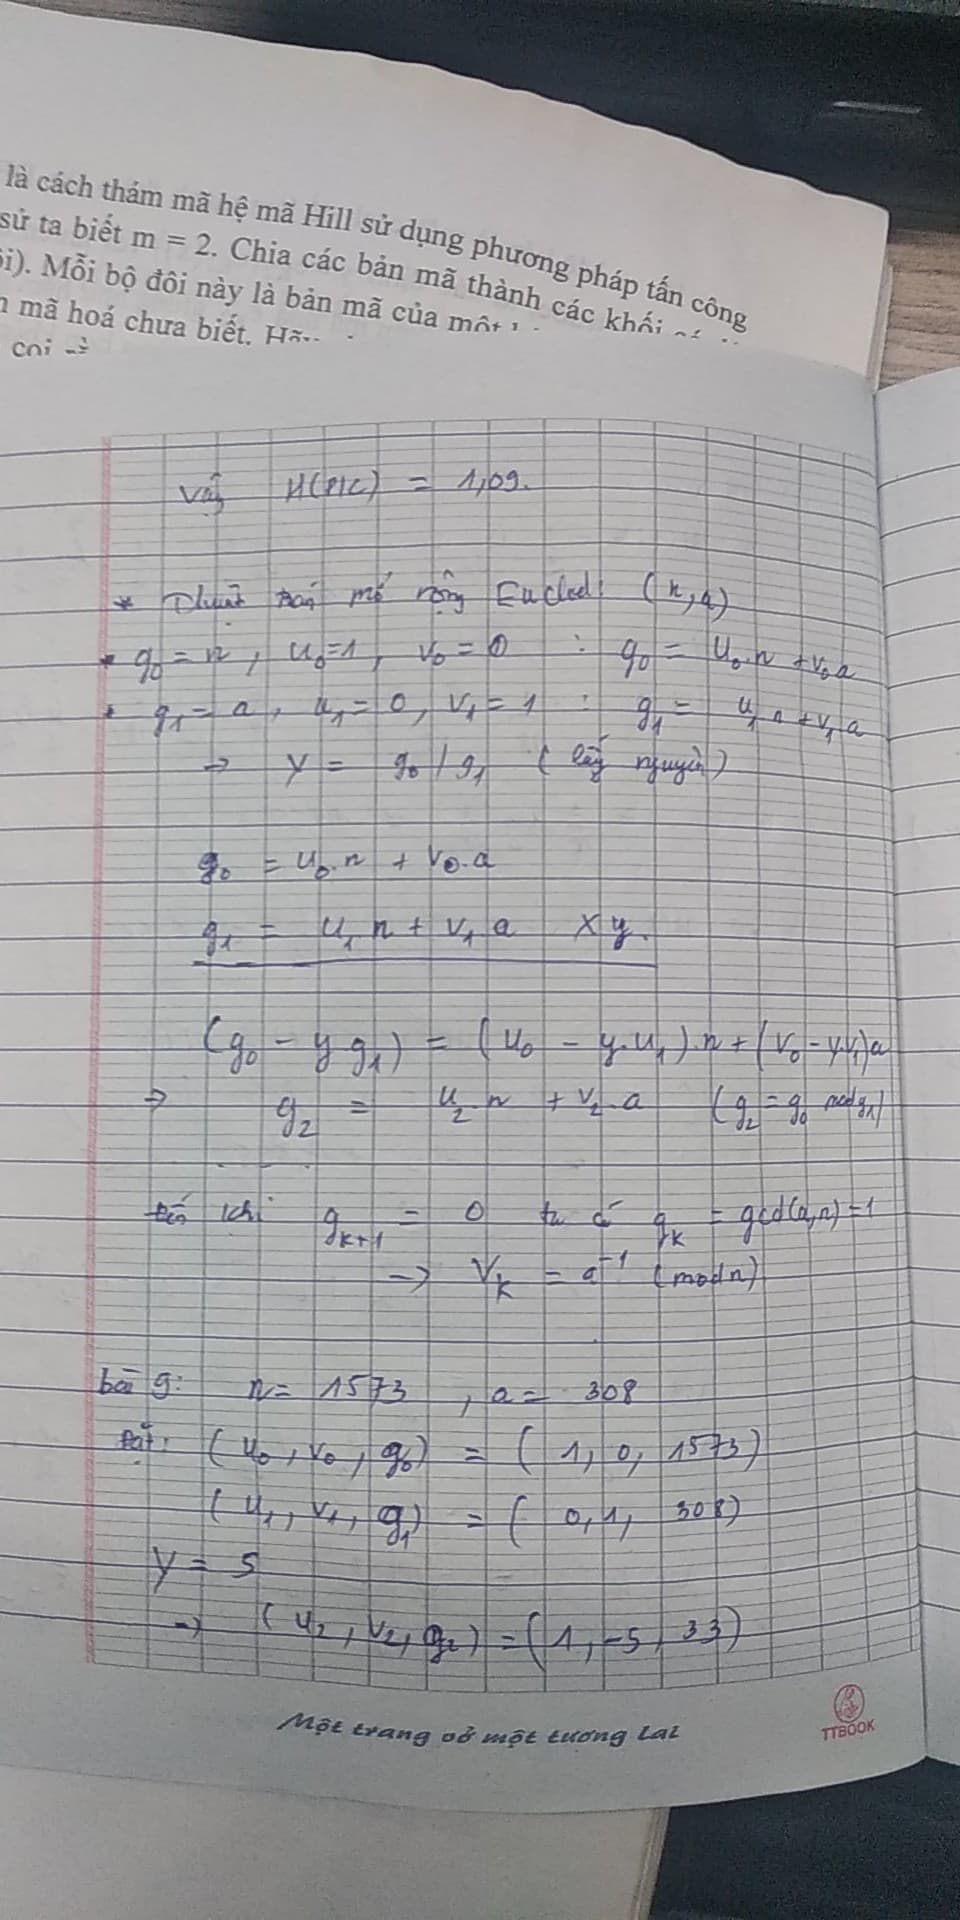 là cách thám mã hệ mã Hill sử dụng phương pháp tấn công
sử ta biết m = 2. Chia các bản mã thành các khối
ôi). Mỗi bộ đôi này là bản mã của một
mã hoá chưa biết.
coi
Vậy H(P|C) = 1,09.
* Thuật toán mở rộng Euclid: (n,a)
* g₀ = n, u₀=1, v₀ = 0 : g₀ = u₀.n + v₀a
* g₁ = a, u₁ = 0, v₁ = 1 : g₁ = u₁ n + v₁ a
→ y = g₀ / g₁ (lấy nguyên)
g₀ = u₀.n + v₀.a
g₁ = u₁ n + v₁ a x y.
(g₀ - y g₁) = (u₀ - y.u₁).n + (v₀ - y.v₁)a
→ g₂ = u₂.n + v₂.a (g₂ = g₀ mod g₁)
đến khi g_{k+1} = 0 ta có g_k = gcd(a,n) = 1
→ V_k = a⁻¹ (mod n)
bài 9: n = 1573, a = 308
Đặt: (u₀, v₀, g₀) = (1, 0, 1573)
(u₁, v₁, g₁) = (0, 1, 308)
y = 5
→ (u₂, v₂, g₂) = (1, -5, 33)
Một trang vở một tương lai
TTBOOK